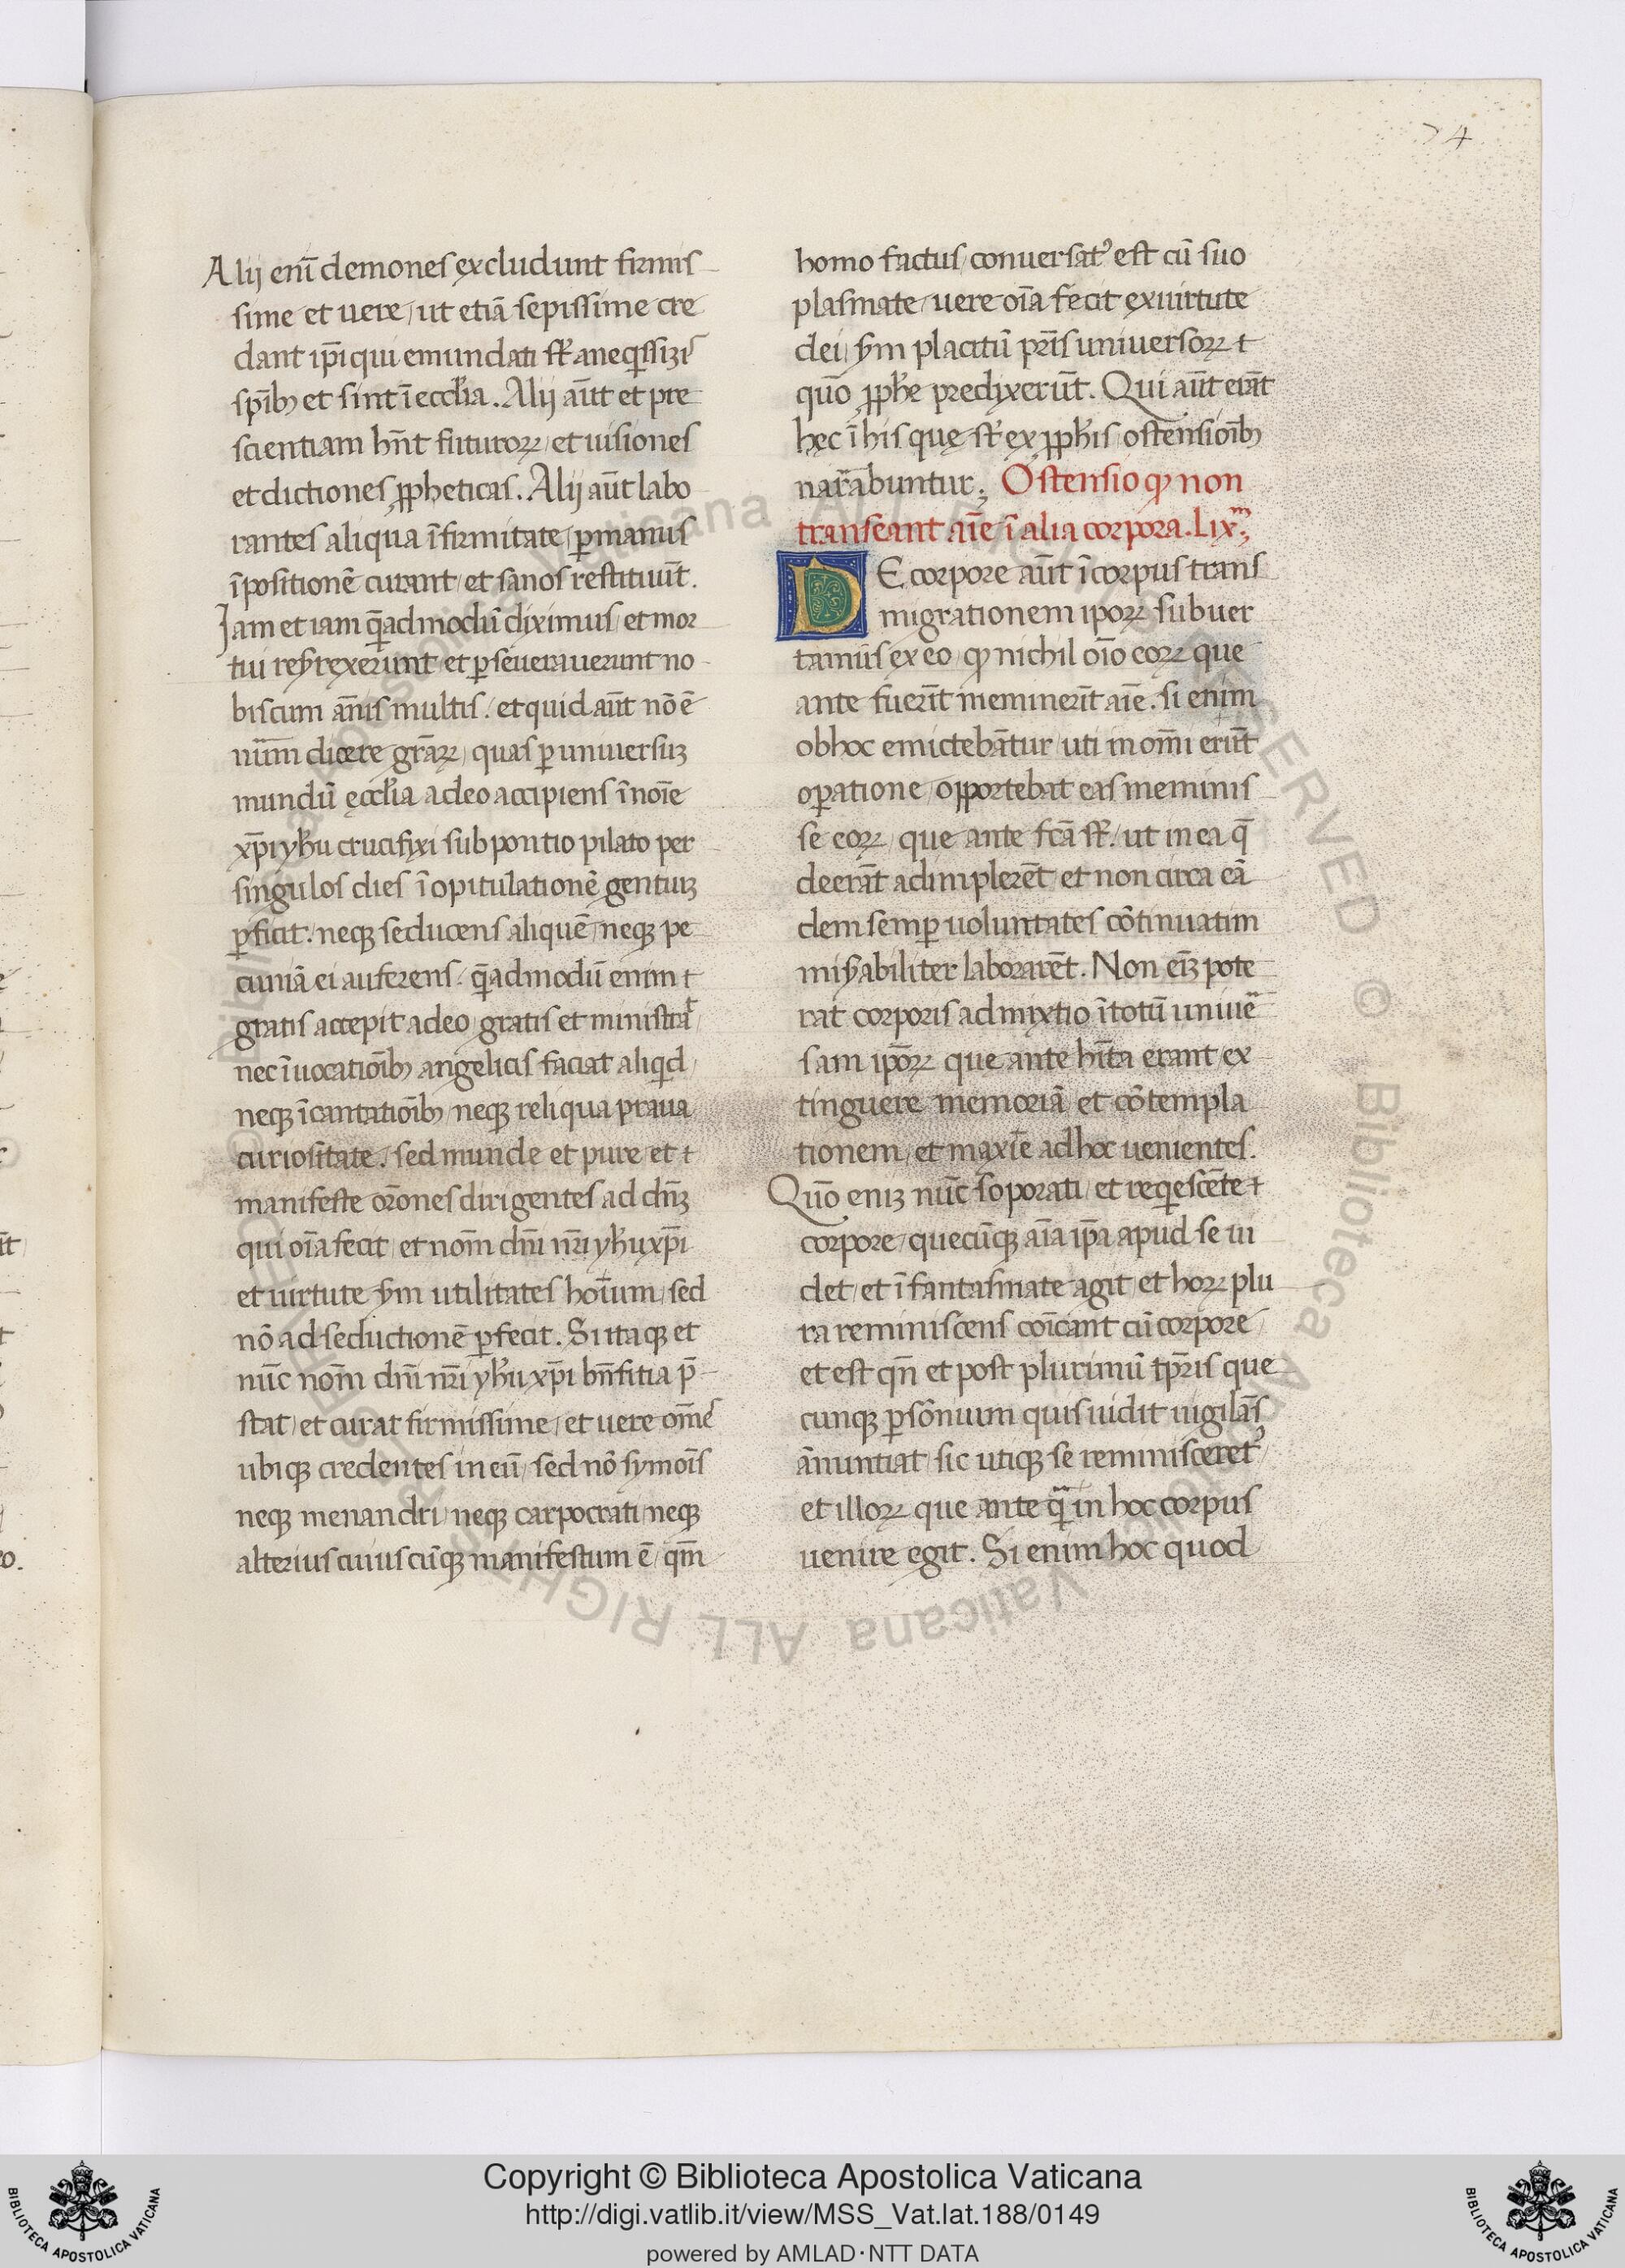 74
Alij enī demones excludunt firmis
sime et uere / ut etiā sepissime cre
dant ip̄i qui emundati st̄ aneq̄ssizis
sp̄ib; et sint ī eccl̄ia. Alij aūt et pre
scientiam hn̄t futuroꝝ / et uisiones
et dictiones ꝓpheticas. Alij aūt labo
rantes aliqua īfirmitate / ꝑ manus
īpositionē curant / et sanos restituūt.
Jam et iam q̄admodū diximus / et mor
tui resurrexerunt et ꝑseuerauerunt no
biscum ān̄is multis. et quid aūt nō ē
nūm dicere gr̄aꝝ / quas ꝑ uniuersuꝫ
mundū ęccl̄ia a deo accipiens ī noīe
xp̄i yħu crucifixi sub pontio pilato per
singulos dies ī opitulationē gentuꝫ
ꝑficit. neqꝫ seducens aliquē / neqꝫ pe
cuniā ei auferens. q̄admodū enim
gratis accepit a deo / gratis et ministrat
nec īuocatioīb; angelicis faciat aliqid
neqꝫ īcantatioīb; neqꝫ reliqua praua
curiositate. sed munde et pure et
manifeste or̄ones dirigentes ad dn̄ꝫ
qui oīa fecit / et nom̄ dn̄i nr̄i yħu xp̄i
et uirtute sm utilitates hoīum / sed
nō ad seductionē ꝑfecit. Si itaqꝫ et
nūc nom̄ dn̄i nr̄i yħu xp̄i bn̄fitia p̄
stat / et curat firmissime / et uere om̄es
ubiqꝫ credentes in eū / sed nō symoīs
neqꝫ menandri / neqꝫ carpocrati / neqꝫ
alterius cuiuscūqꝫ manifestum ē / qm̄
homo factus / conuersatꝰ est cū suo
plasmate / uere oīa fecit ex uirtute
dei / sm placitū pr̄is uniuersoꝝ
quō ꝓph̄e predixerūt. Qui aūt erāt
hęc ī his quę st̄ ex ꝓph̄is / ostensioīb;
narrabuntur; Ostensio qꝫ non
transeant aīe ī alia corpora. Lix.m;
DE corpore aūt ī corpus trans
migrationem ipoꝝ subuer
tamus ex eo / qꝫ nichil oīo eoꝝ que
ante fuerīt meminerīt aīe. si enim
ob hoc emictebātur / uti in omī erūt
oꝑatione / opportebat eas meminis
se eoꝝ / que ante fcā st̄. ut in ea q̄
deerāt adimplerēt et non circa eā
dem semꝑ uoluntates cōtinuatim
misabiliter laborarēt. Non eīꝫ pote
rat corporis admixtio ī totū uniuer
sam ipōꝝ que ante hīta erant / ex
tinguere memoriā et cōtempla
tionem / et maxīe ad hoc uenientes.
Quō eniꝫ nūc soporati / et reqiescēte
corpore / quecūqꝫ aīa ip̄a apud se ui
det / et ī fantasmate agit / et hoꝝ plu
ra reminiscens coīcant cū corpore /
et est qn̄ et post plurimū tp̄ris que
cunqꝫ ꝑ sōnium quis uidit uigilās
ānuntiat / sic utiqꝫ se reminisceretꝰ /
et illoꝝ que ante q̄ in hoc corpus
uenire egit. Si enim hoc quod
Copyright © Biblioteca Apostolica Vaticana
http://digi.vatlib.it/view/MSS_Vat.lat.188/0149
powered by AMLAD·NTT DATA
BIBLIOTECA APOSTOLICA VATICANA
BIBLIOTECA APOSTOLICA VATICANA